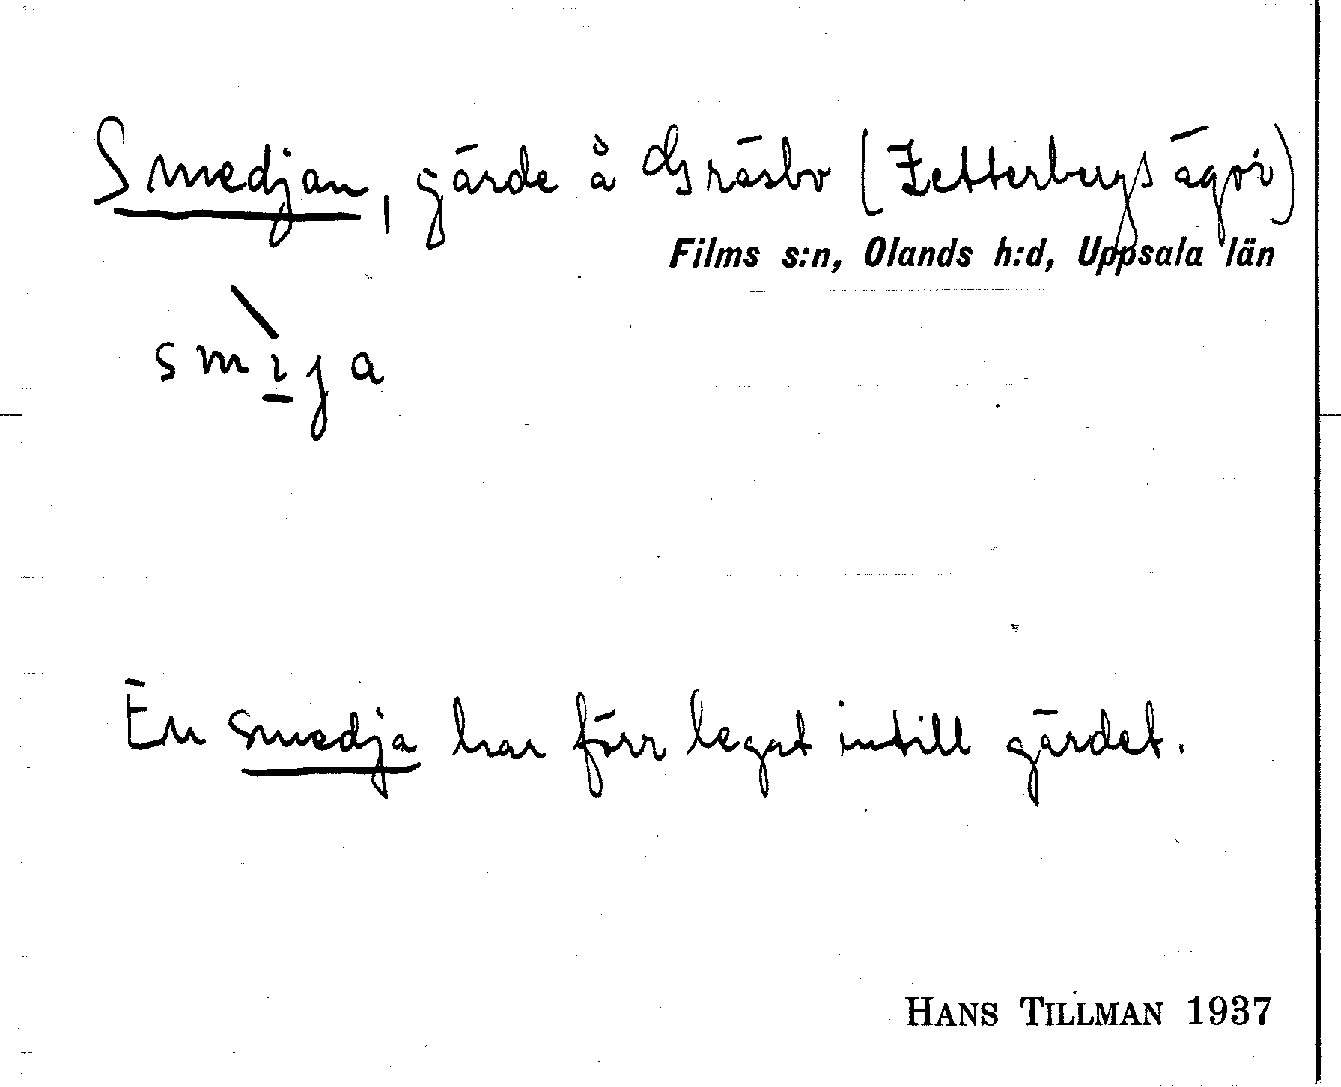 Smedjan, gärde å Gräsbo (Zetterbergs ägor)
Films s:n, Olands h:d, Uppsala län
smìja
En smedja har förr legat intill gärdet.
HANS TILLMAN 1937